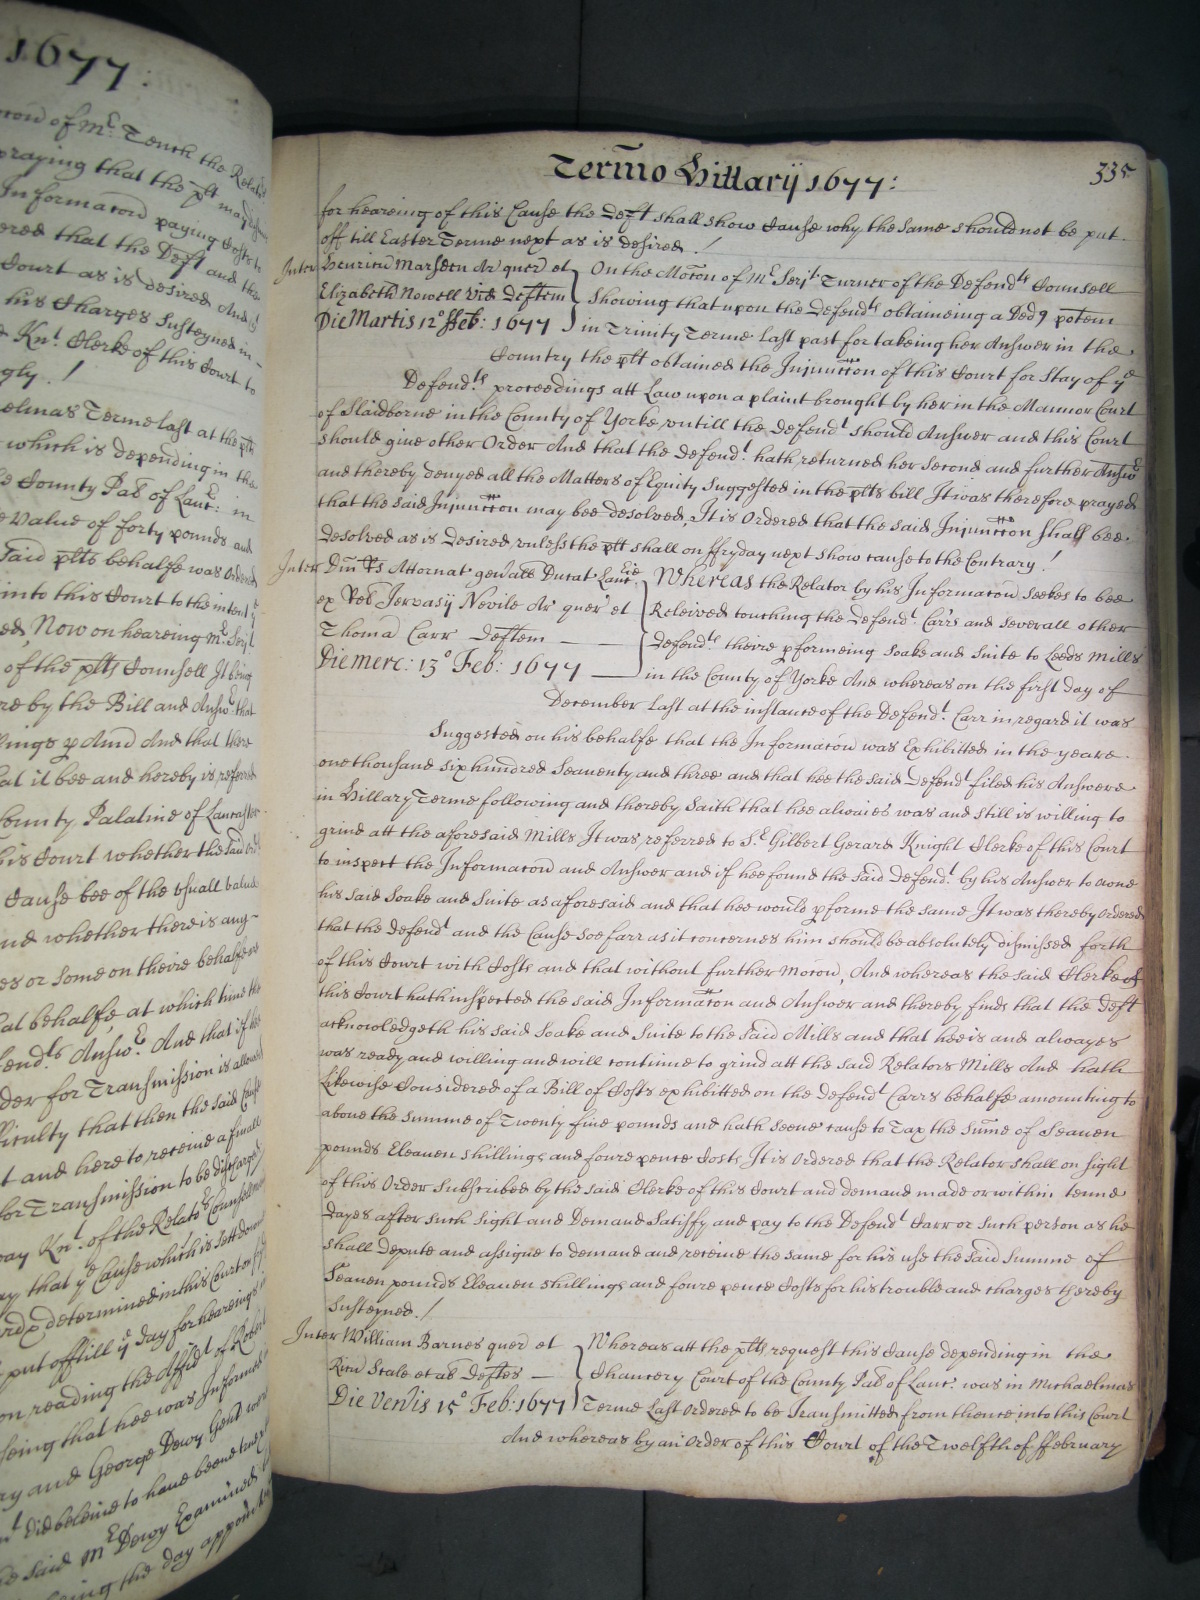 1677:
... of Mr. Tench the Relat
praying that the plt may
Informacon paying Costs
ered that the Deft and
Court as is desired And
his Charges Susteyned in
Knt. Clerke of this Court to
gly. /
elmas Terme last at the plts
which is depending in the
County Pal of Lanc: in
Value of forty pounds and
said plts behalfe was Ordered
into this Court to the intent
ed, Now on heareing Mr. Serjt
of the plts Counsell It being
re by the Bill and Answr. that
And that there
at it bee and hereby is referred
County Palatine of Lancaster
his Court whether the said
Cause bee of the usuall value
and whether there is any
es or some on theire behalfe
at behalfe at which time the
fendts. Answr. And that if
der for Transmission is allowed
iculty that then the said Cause
t and here to receive a finall
for Transmission to be discharged
Knt. of the Relators Counsell
that ye Cause which is sett downe
determined in this Court
put off till ye day for heareing
on reading the Affidt of Robert
seing that hee was Informed
ry and George Dewy Gent
did beleive to have beene
he said Mr Dewy Examined
the day appointed
Termo Hillarij 1677:
335
for heareing of this Cause the Deft shall show Cause why the same should not be put
off till Easter Terme next as is desired /
Inter Henricu Marsden Ar quer et
Elizabeth Nowell Vid Deftem
Die Martis 12o ffeb: 1677
On the Moton of Mr. Serjt. Turner of the Defendts Counsell
Showing that upon the Defendts obtaineing a Ded9 potem
in Trinity Terme Last past for takeing her Answer in the
Country the plt obtained the Injunccon of this Court for Stay of ye
Defendts. proceedings att Law upon a plaint brought by her in the Mannor Court
of Slaidborne in the County of Yorke, untill the Defendt should Answer and this Court
should give other Order And that the Defendt. hath returned her Second and further Answr
and thereby denyed all the Matters of Equity Suggested in the plts bill It was therefore prayed
that the said Injunccon may bee desolved, It is Ordered that the said Injunccon shall bee
Desolved as is desired, unless the plt shall on ffryday next show cause to the Contrary /
Inter Dm Rs Attornat genal Ducat Lancie
ex Rel Jervasij Nevile Ar quer et
Thoma Carr Deftem
Die merc: 13o Feb: 1677
Whereas the Relator by his Informacon Seekes to bee
Releived touching the Defendt. Carrs and Severall other
Defendts. theire pformeing Soake and Suite to Leeds Mills
in the County of Yorke And whereas on the first day of
December Last at the instance of the Defendt. Carr in regard it was
Suggested on his behalfe that the Informacon was Exhibitted in the yeare
one thousand six hundred Seaventy and three and that hee the said Defendt filed his Answere
in Hillary Terme following and thereby Saith that hee alwaies was and still is willing to
grind att the aforesaid Mills It was referred to Sr. Gilbert Gerard Knight Clerke of this Court
to inspect the Informacon and Answer and if hee found the said Defendt. by his Answer to owne
his said Soake and Suite as aforesaid and that hee would pforme the same It was thereby Ordered
that the Defendt and the Cause soe farr as it concernes him should be absolutely dismissed forth
of this Court with Costs and that without further Mocon, And whereas the said Clerke of
this Court hath inspected the said Informacon and Answer and thereby finds that the Deft
acknowledgeth his said Soake and Suite to the said Mills and that hee is and alwayes
was ready and willing and will continue to grind att the said Relators Mills And hath
Likewise Considered of a Bill of Costs exhibitted on the Defendt Carrs behalfe amounting to
above the summe of Twenty five pounds and hath seene cause to Tax the Sume of Seaven
pounds Eleaven shillings and foure pence Costs, It is Ordered that the Relator shall on sight
of this Order Subscribed by the said Clerke of this Court and demand made or within tenne
dayes after such sight and Demand Satisfy and pay to the Defendt Carr or such person as he
shall depute and assigne to demand and receive the same for his use the said Summe of
Seaven pounds Eleaven shillings and foure pence Costs for his trouble and charges thereby
Susteyned /
Inter William Barnes quer et
Ricu Scale et al Deftes
Die Venis 15o Feb: 1677
Whereas att the plts request this Cause depending in the
Chancery Court of the County Pal of Lanc. was in Michaelmas
Terme Last Ordered to be Transmitted from thence into this Court
And whereas by an Order of this Court of the Twelfth of ffebruary